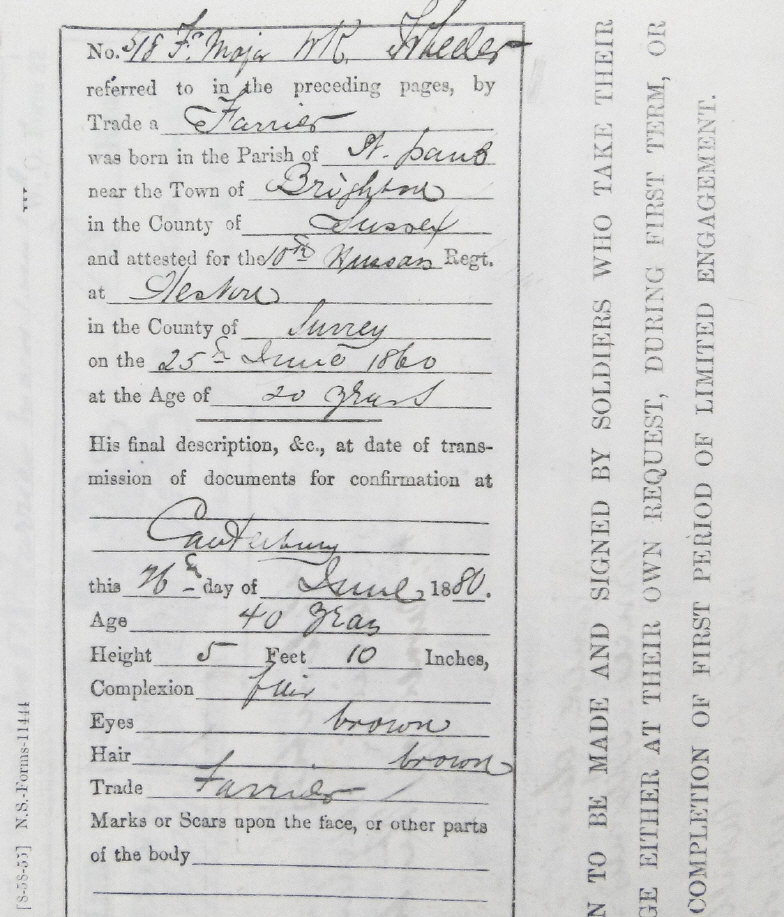 No. 518 Fr. Major Wm. Wheeler
referred to in the preceding pages, by
Trade a Farrier
was born in the Parish of St. Pauls
near the Town of Brighton
in the County of Sussex
and attested for the 10th Hussars Regt.
at
in the County of Surrey
on the 25th June 1860
at the Age of 20 years
His final description, &c., at date of trans-
mission of documents for confirmation at
Canterbury
this 26th day of June 1880.
Age 40 years
Height 5 Feet 10 Inches,
Complexion fair
Eyes brown
Hair brown
Trade Farrier
Marks or Scars upon the face, or other parts
of the body
[8-58-55] N.S.-Forms-11444
N TO BE MADE AND SIGNED BY SOLDIERS WHO TAKE THEIR
GE EITHER AT THEIR OWN REQUEST, DURING FIRST TERM, OR
COMPLETION OF FIRST PERIOD OF LIMITED ENGAGEMENT.